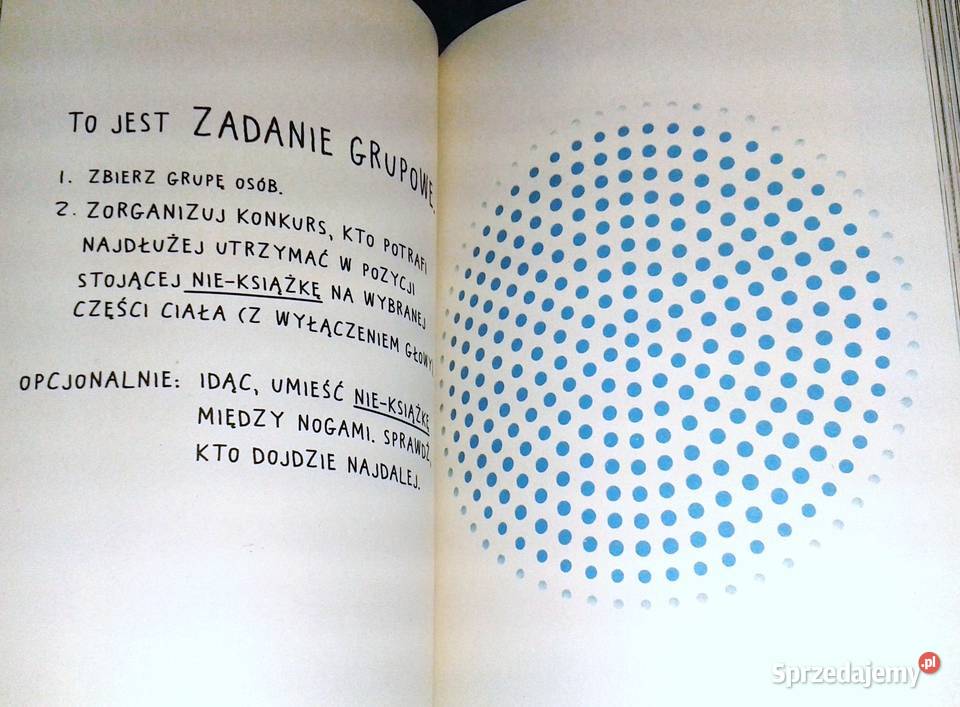 TO JEST ZADANIE GRUPOWE.
1. ZBIERZ GRUPĘ OSÓB.
2. ZORGANIZUJ KONKURS, KTO POTRAFI
NAJDŁUŻEJ UTRZYMAĆ W POZYCJI
STOJĄCEJ NIE-KSIĄŻKĘ NA WYBRANEJ
CZĘŚCI CIAŁA (Z WYŁĄCZENIEM GŁOWY)
OPCJONALNIE: IDĄC, UMIEŚĆ NIE-KSIĄŻKĘ
MIĘDZY NOGAMI. SPRAWDŹ,
KTO DOJDZIE NAJDALEJ.
Sprzedajemy.pl